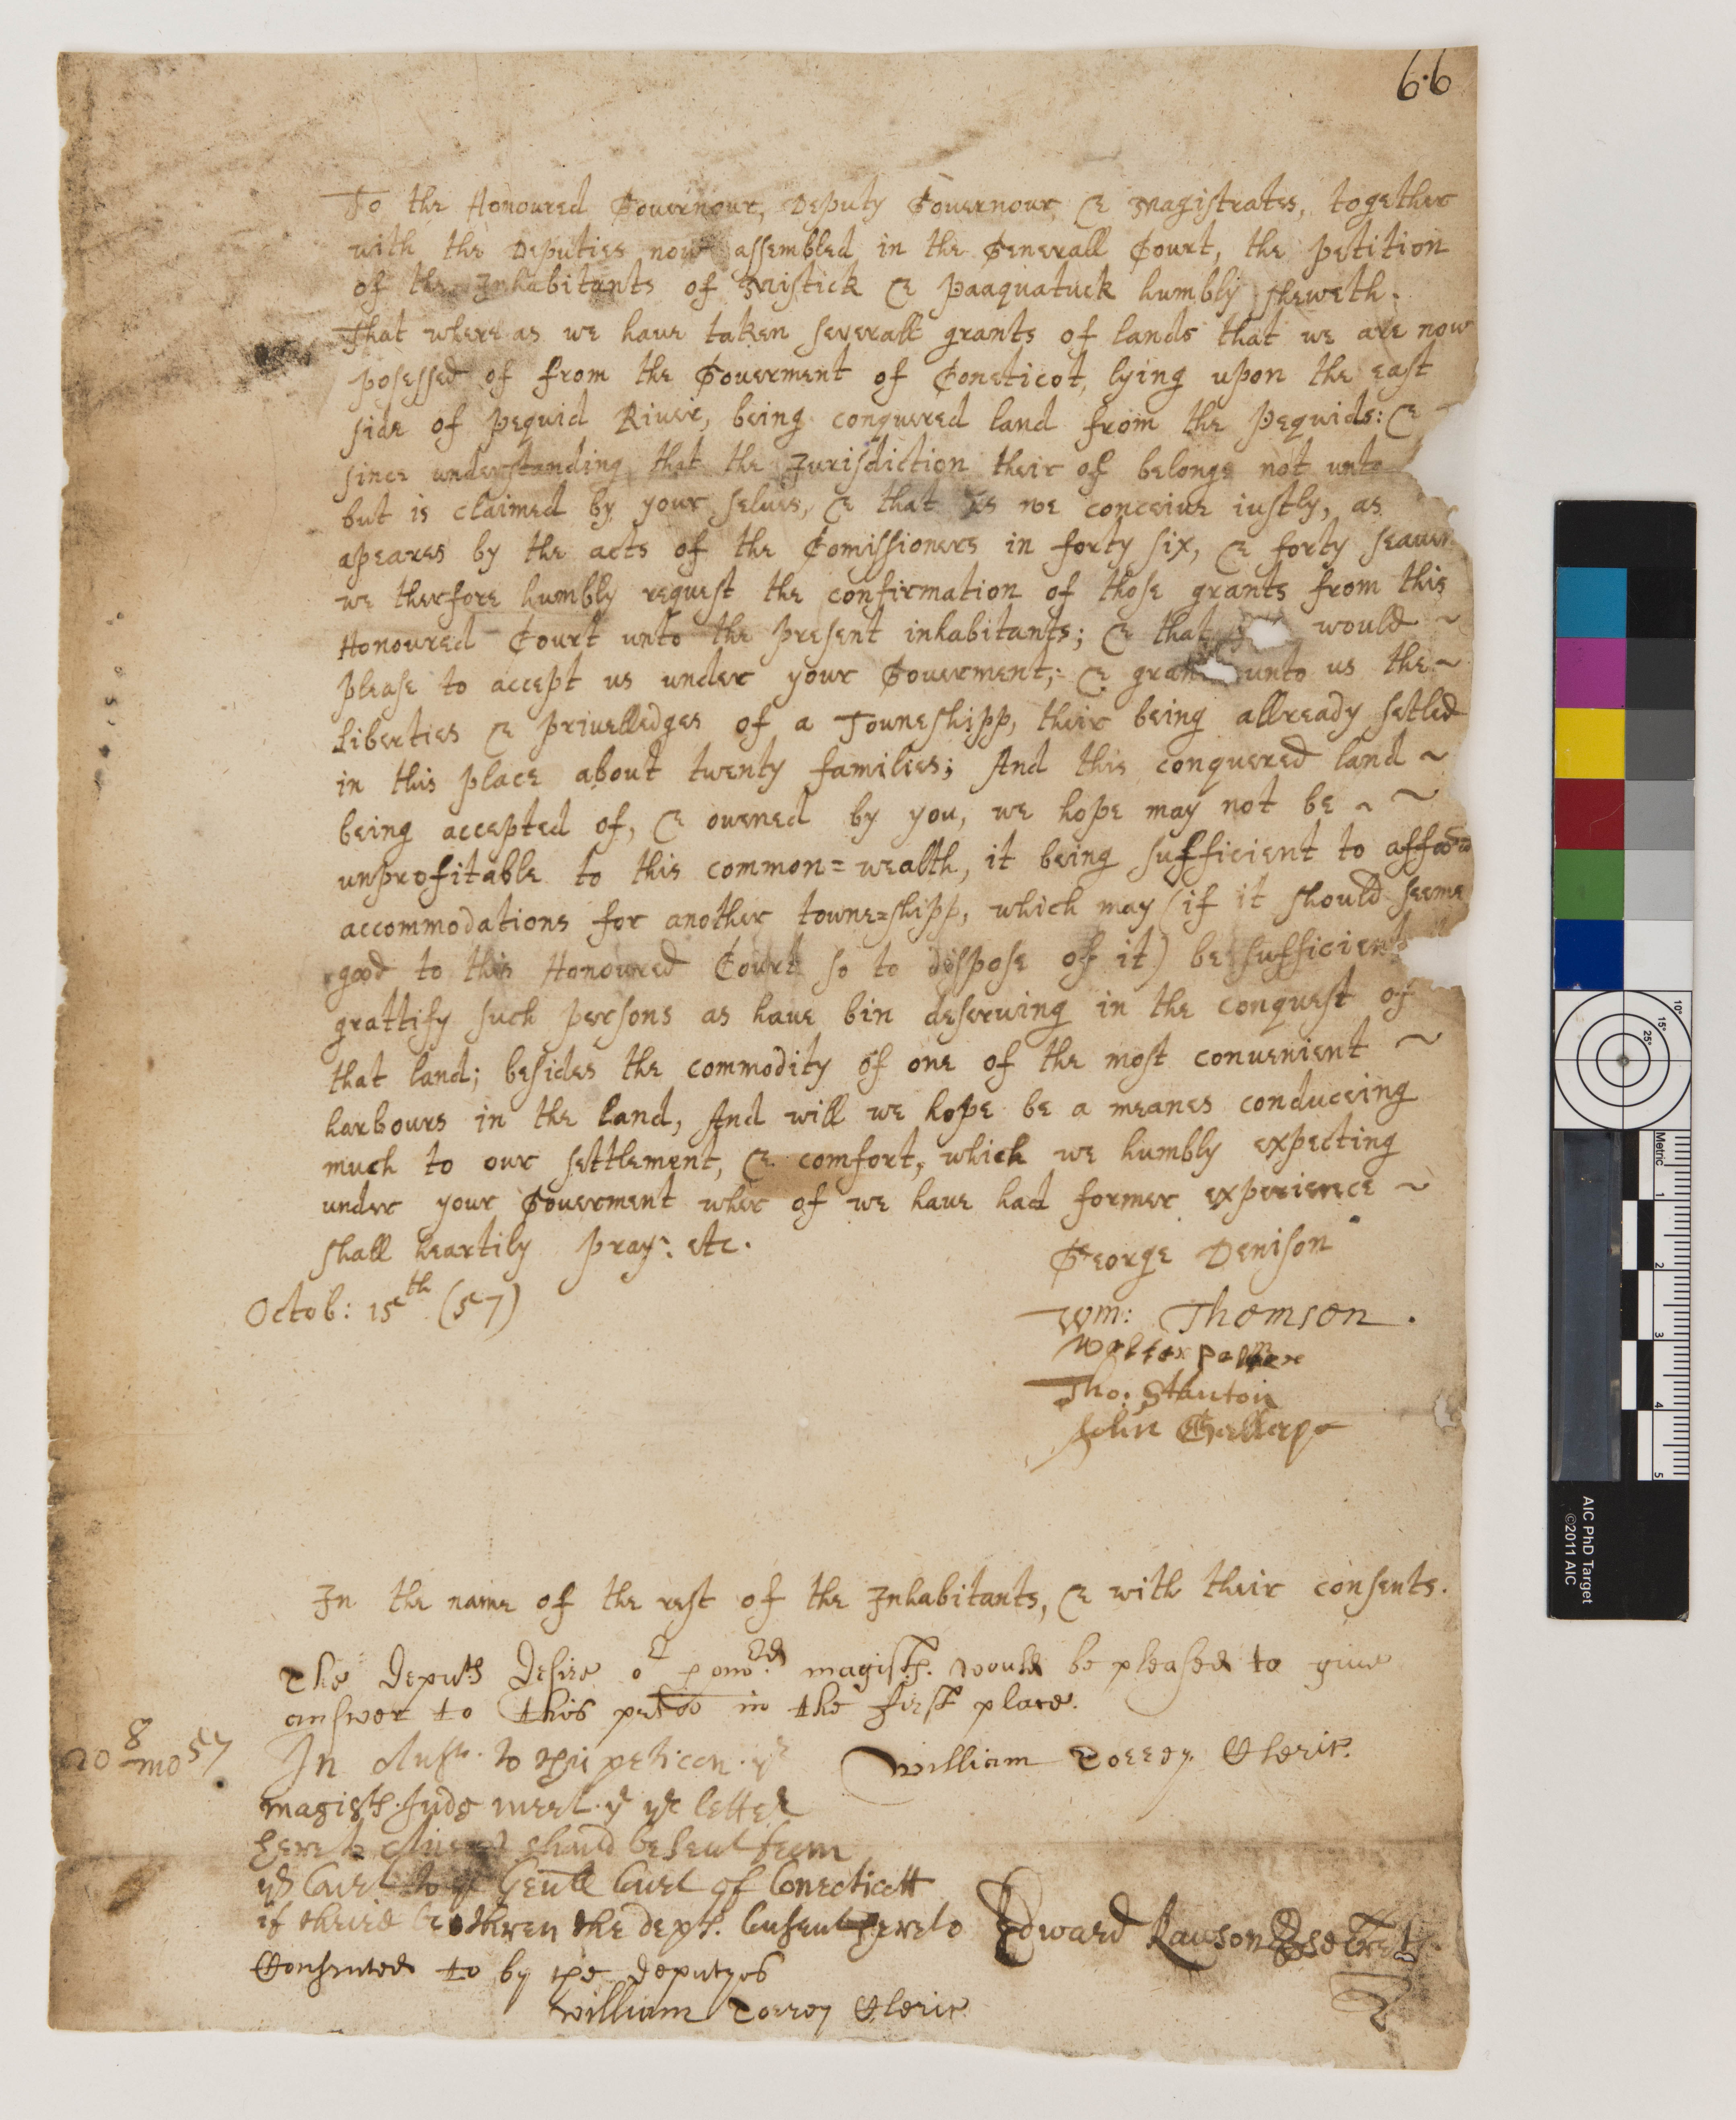 66
To the Honoured Gouernour, Deputy Gouernour & Magistrates, together
with the Deputies now assembled in the Generall Court, the petition
of the Inhabitants of Mistick & Paaquatuck humbly sheweth.
That where as we haue taken seuerall grants of lands that we are now
posessed of from the Gouerment of Coneticot, lying upon the east
side of Pequid Riuer, being conquered land from the Pequids: &
since understanding that the Jurisdiction their of belongs not unto
but is claimed by your selues, & that as we conceiue iustly, as
apeares by the acts of the Comissioners in forty six, & forty seauen
we therfore humbly request the confirmation of those grants from this
Honoured Court unto the present inhabitants; & that would ~
please to accept us under your Gouerment; & grant unto us the ~
liberties & priuelledges of a Towneshipp, their being allready setled
in this place about twenty families; And this conquered land ~
being accepted of, & owened by you, we hope may not be ~ ~
unprofitable to this common=wealth, it being sufficient to afford
accommodations for another towne=shipp, which may (if it should seeme
good to this Honoured Court so to dispose of it) be sufficient
grattify such persons as haue bin deseruing in the conquest of
that land; besides the commodity of one of the most conuenient ~
harbours in the land, And will we hope be a meanes conduceing
much to our settlement, & comfort, which we humbly expecting
under your Gouerment wher of we haue had former experience ~
shall heartily pray: etc.
Octob: 15th (57)
George Denison
Wm: Thomson.
Walter palmer
Tho: Stanton
John Gallop
In the name of the rest of the Inhabitants, & with their consents.
The Deputs Desire or honord magists. would be pleased to giue
answer to this peticõ in the first place.
William Torrey Cleric.
20 8 mo 57
In Answr. to this peticon. ye
magists. Judg meet. yt ye letter
hereto should be sent from
ys Court to ye Genll Court of Conecticott
if theire brethren the depts. Consent hereto Edward Rawson Secrety.
Consented to by the deputyes
William Torrey Cleric
AIC PhD Target
©2011 AIC
Metric
1
2
3
4
5
10°
15°
25°